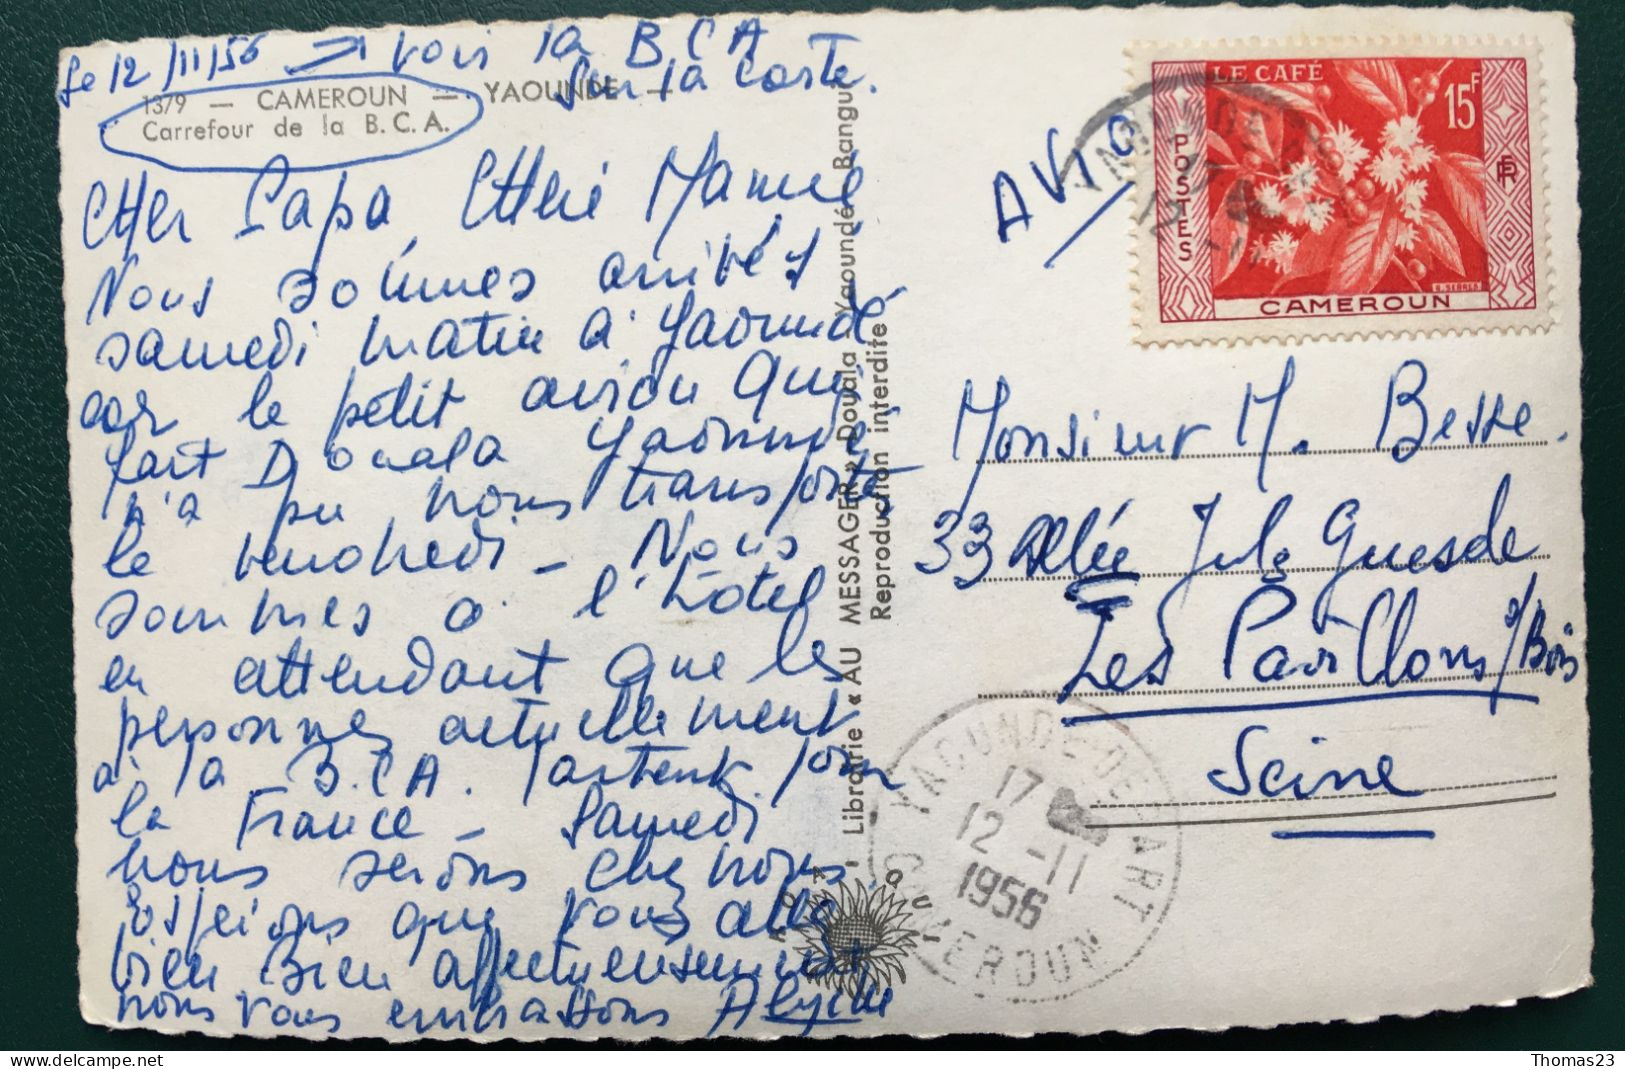 Le 12/11/56 → Voir la B C A
sur la carte.
1379 — CAMEROUN — YAOUNDE —
Carrefour de la B. C. A.
Cher Papa, Chère Mamie
Nous sommes arrivés
samedi matin à Yaoundé
car le petit avion qui
fait Douala Yaoundé
n'a pu nous transporter
le vendredi - Nous
sommes à l'hôtel
en attendant que les
personnes actuellement
à la B.C.A. partent pour
la France - Samedi
nous serons chez nous.
Espérons que vous allez
bien Bien affectueusement
nous vous embrassons
Librairie « AU MESSAGER » Douala - Yaoundé - Bangui
Reproduction interdite
AVION
LE CAFÉ
15F
POSTES
RF
CAMEROUN
Monsieur M. Besse.
33 Allée Jules Guesde
Les Pavillons s/Bois
Seine
YAOUNDE-DEPART
17
12 -11
1956
CAMEROUN
Thomas23